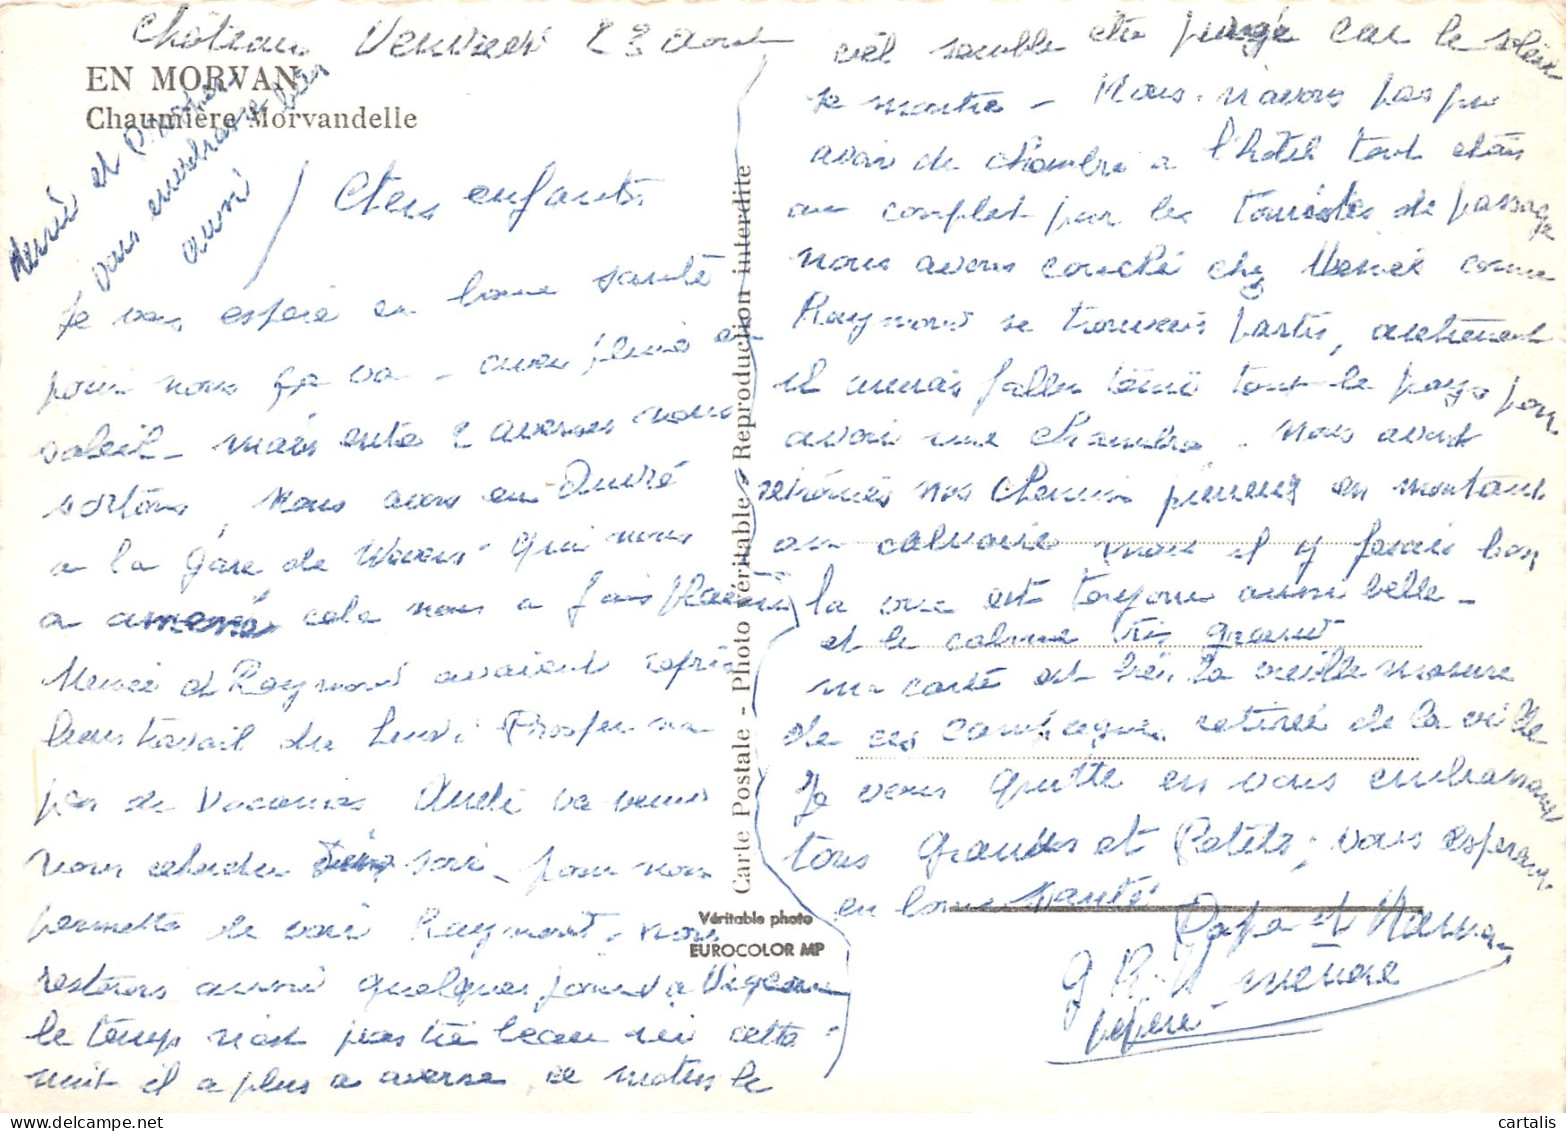 Château Vendredi 23 Aout
EN MORVAN
Chaumière Morvandelle
vous embrasse bien
aussi
Chers enfants
Je vous espère en bonne santé
pour nous ça va - avec pluie et
soleil - mais entre 2 averses nous
sortons, Nous avons eu André
a la gare de qui nous
a amené cela nous a fais plaisir
et Raymond avaient repris
leur travail du Lundi Prosper na
pas de vacances André va venir
nous chercher soir - pour nous
permettre de voir Raymond, nous
resterons aussi quelques jours a
le temps n'est pas très beau ici cette
nuit il a plus a averse, ce matin le
ciel semble etre purgé car le soleil
se montre - Nous n'avons pas pu
avoir de chambre a l'hotel tout étais
au complet par les touristes de passage
nous avons couché chez comme
Raymond se trouvais partis, autrement
il aurais fallu tout le pays pour
avoir une chambre. Nous avons
retrouvés nos chemins pierreux en montant
au calvaire mais il y faisais bon
la vue est toujours aussi belle -
et le calme très grand
ma carte est la vieille masure
de ces campagnes retirée de la ville
Je vous quitte en vous embrassant
tous grands et Petits, vous esperant
en bonne santé
Papa et Maman
memere
pepere
Carte Postale - Photo Véritable - Reproduction interdite
Véritable photo
EUROCOLOR MP
cartalis